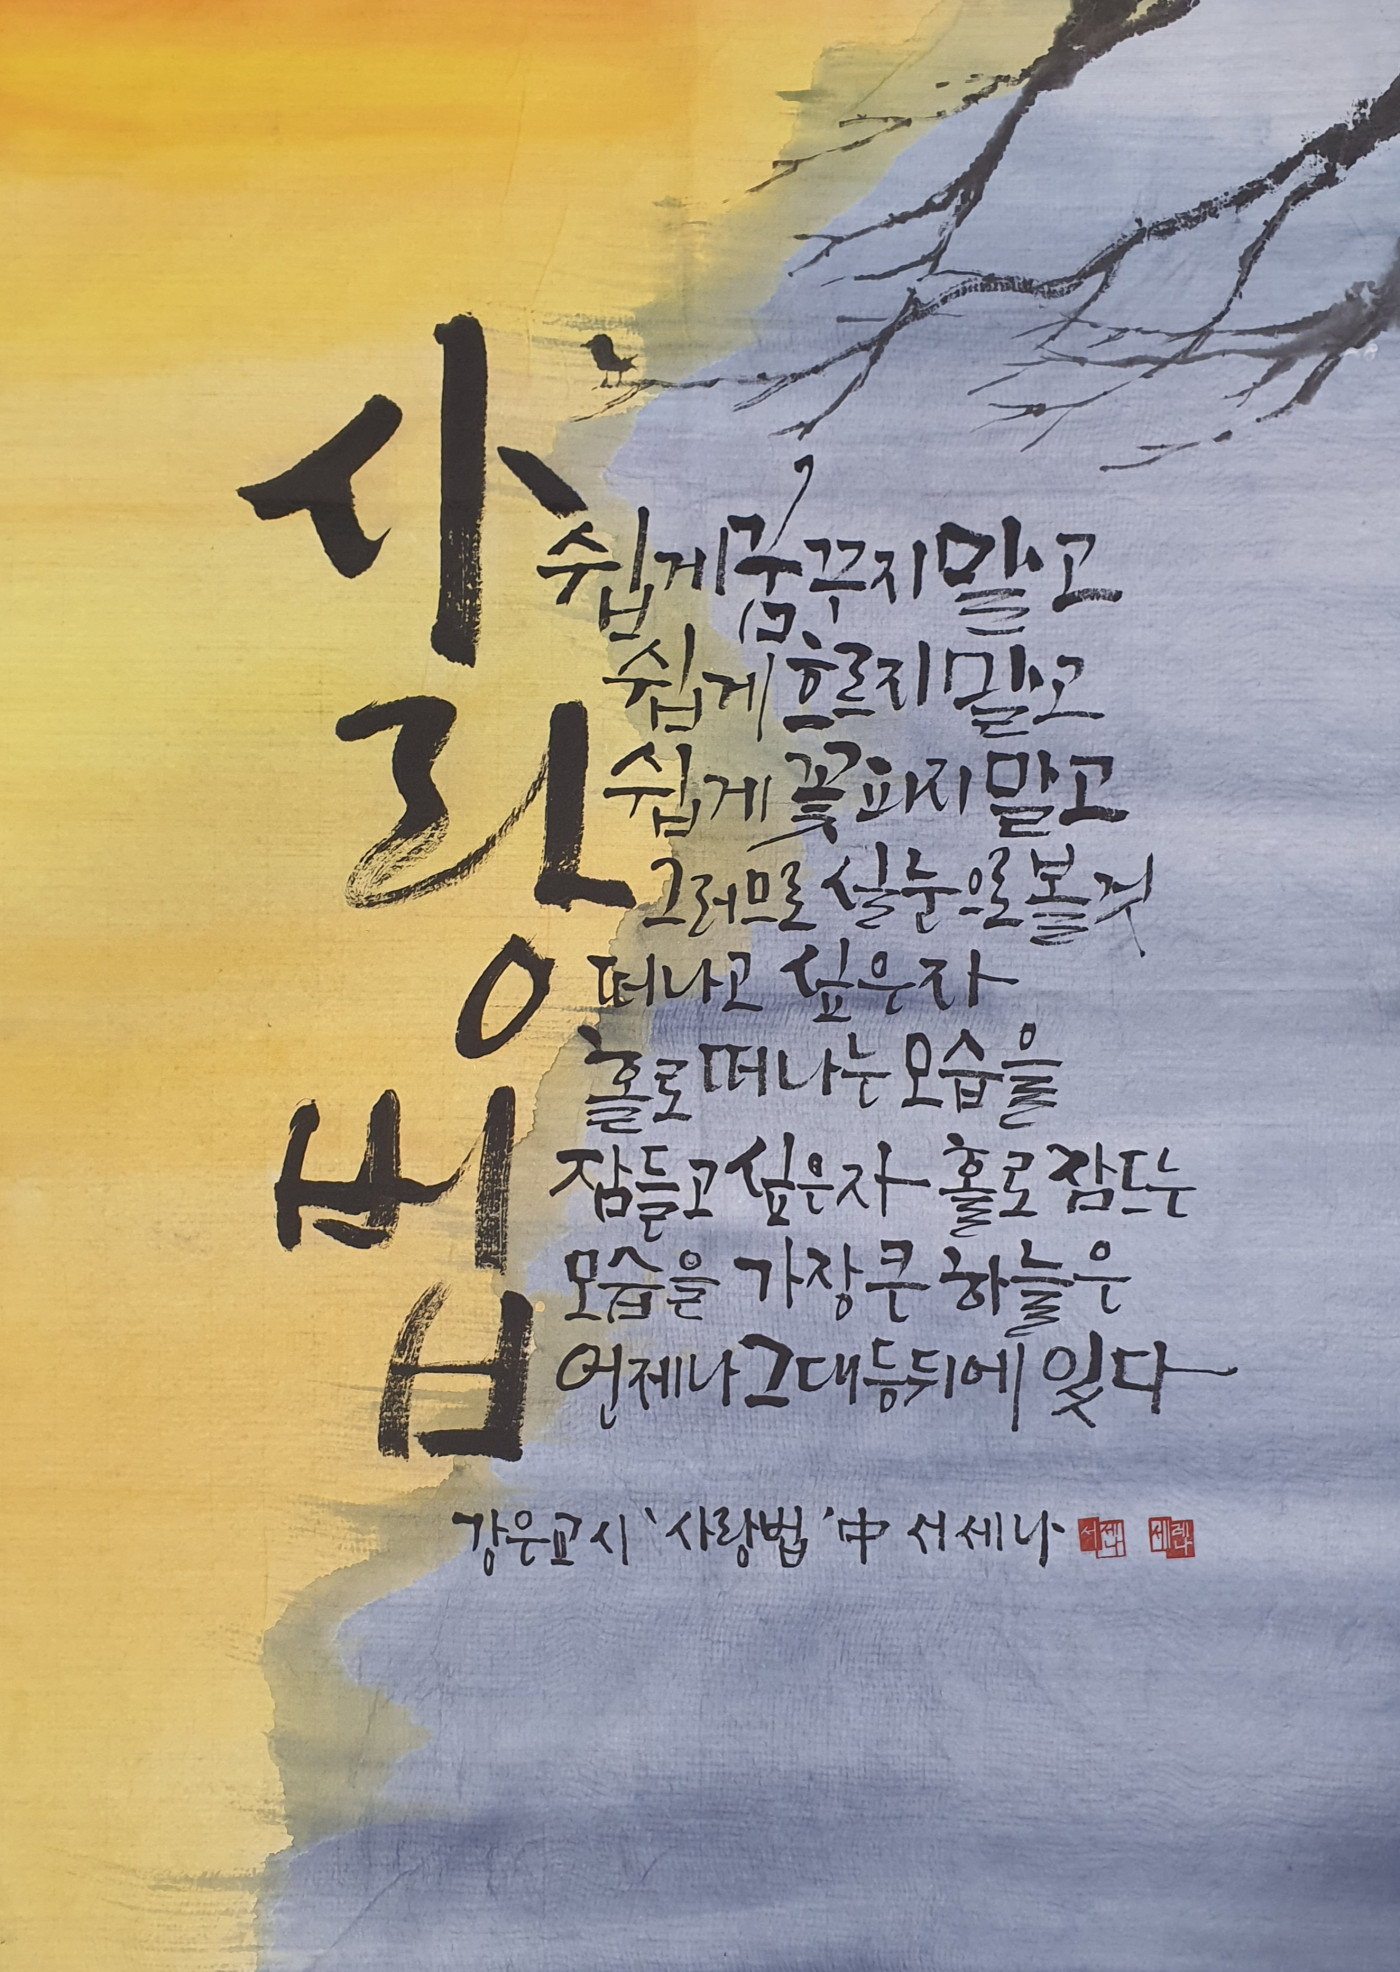 사랑법
쉽게 꿈꾸지 말고
쉽게 흐르지 말고
쉽게 꽃피지 말고
그러므로 실눈으로 볼 것
떠나고 싶은 자
홀로 떠나는 모습을
잠들고 싶은 자 홀로 잠드는
모습을 가장 큰 하늘은
언제나 그대 등 뒤에 있다
강은교 시 '사랑법' 中 서세나